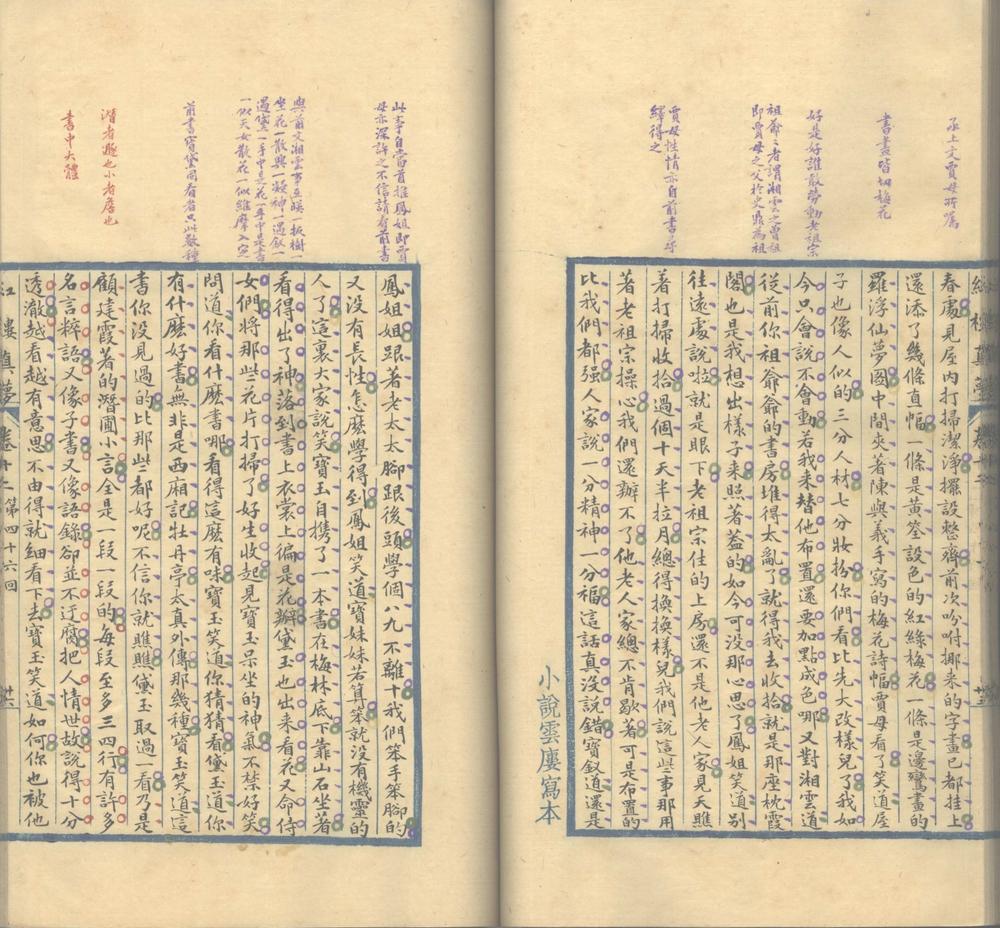 承上文賈母所囑
書畫皆切梅花
好是好誰敢勞動老祖宗
祖爺爺者謂湘雲之曾祖
即賈母之父於史鼎為祖
賈母性情亦自前書
繹得之
春處見屋内打掃潔淨擺設整齊前次吩咐挪来的字畫已都挂上
還添了幾條直幅一條是黄筌設色的紅綠梅花一條是邊鸞畫的
羅浮仙夢圖中間夾著陳與義手寫的梅花詩幅賈母看了笑道屋
子也像人似的三分人材七分妝扮你們看比先大改樣兒了我如
今只會說不會動若我来替他布置還要加點成色哪又對湘雲道
從前你祖爺爺的書房堆得太亂了就得我去收拾就是那座枕霞
閣也是我想出樣子来照著蓋的如今可没那心思了鳳姐笑道别
往遠處說啦就是眼下老祖宗住的上房還不是他老人家見天瞧
著打掃收拾過個十天半拉月總得換換樣兒我們說這些事那用
著老祖宗操心我們還辦不了他老人家總不肯歇著可是布置的
比我們都强人家說一分精神一分福這話真没說錯寶釵道還是
小說雲廔寫本
此事自當首推鳳姐即賈
母亦深許之不信請看前書
與前文湘雲事互映一扳樹一
坐花一散興一凝神一遇釵一
遇黛一手中是花一手中是書
一似天女散花一似維摩入定
前書寶黛同看者只此數種
潛者遯也小者詹也
書中大體
鳳姐姐跟著老太太腳跟後頭學個八九不離十我們笨手笨腳的
又没有長性怎麽學得到鳳姐笑道寶妹妹若算笨就没有機靈的
人了這裏大家說笑寶玉自携了一本書在梅林底下靠山石坐著
看得出了神落到書上衣裳上徧是花瓣黛玉也出来看花又命侍
女們將那些花片打掃了好生收起見寶玉呆坐的神氣不禁好笑
問道你看什麽書哪看得這麽有味寶玉笑道你猜猜看黛玉道你
有什麽好書無非是西廂記牡丹亭太真外傳那幾種寶玉笑道這
書你没見過的比那些都好呢不信你就瞧瞧黛玉取過一看乃是
顧建霞著的潛圃小言全是一段一段的每段至多三四行有許多
名言粹語又像子書又像語錄卻並不迂腐把人情世故說得十分
透澈越看越有意思不由得就細看下去寶玉笑道如何你也被他
紅樓真夢 卷十二 第四十六回